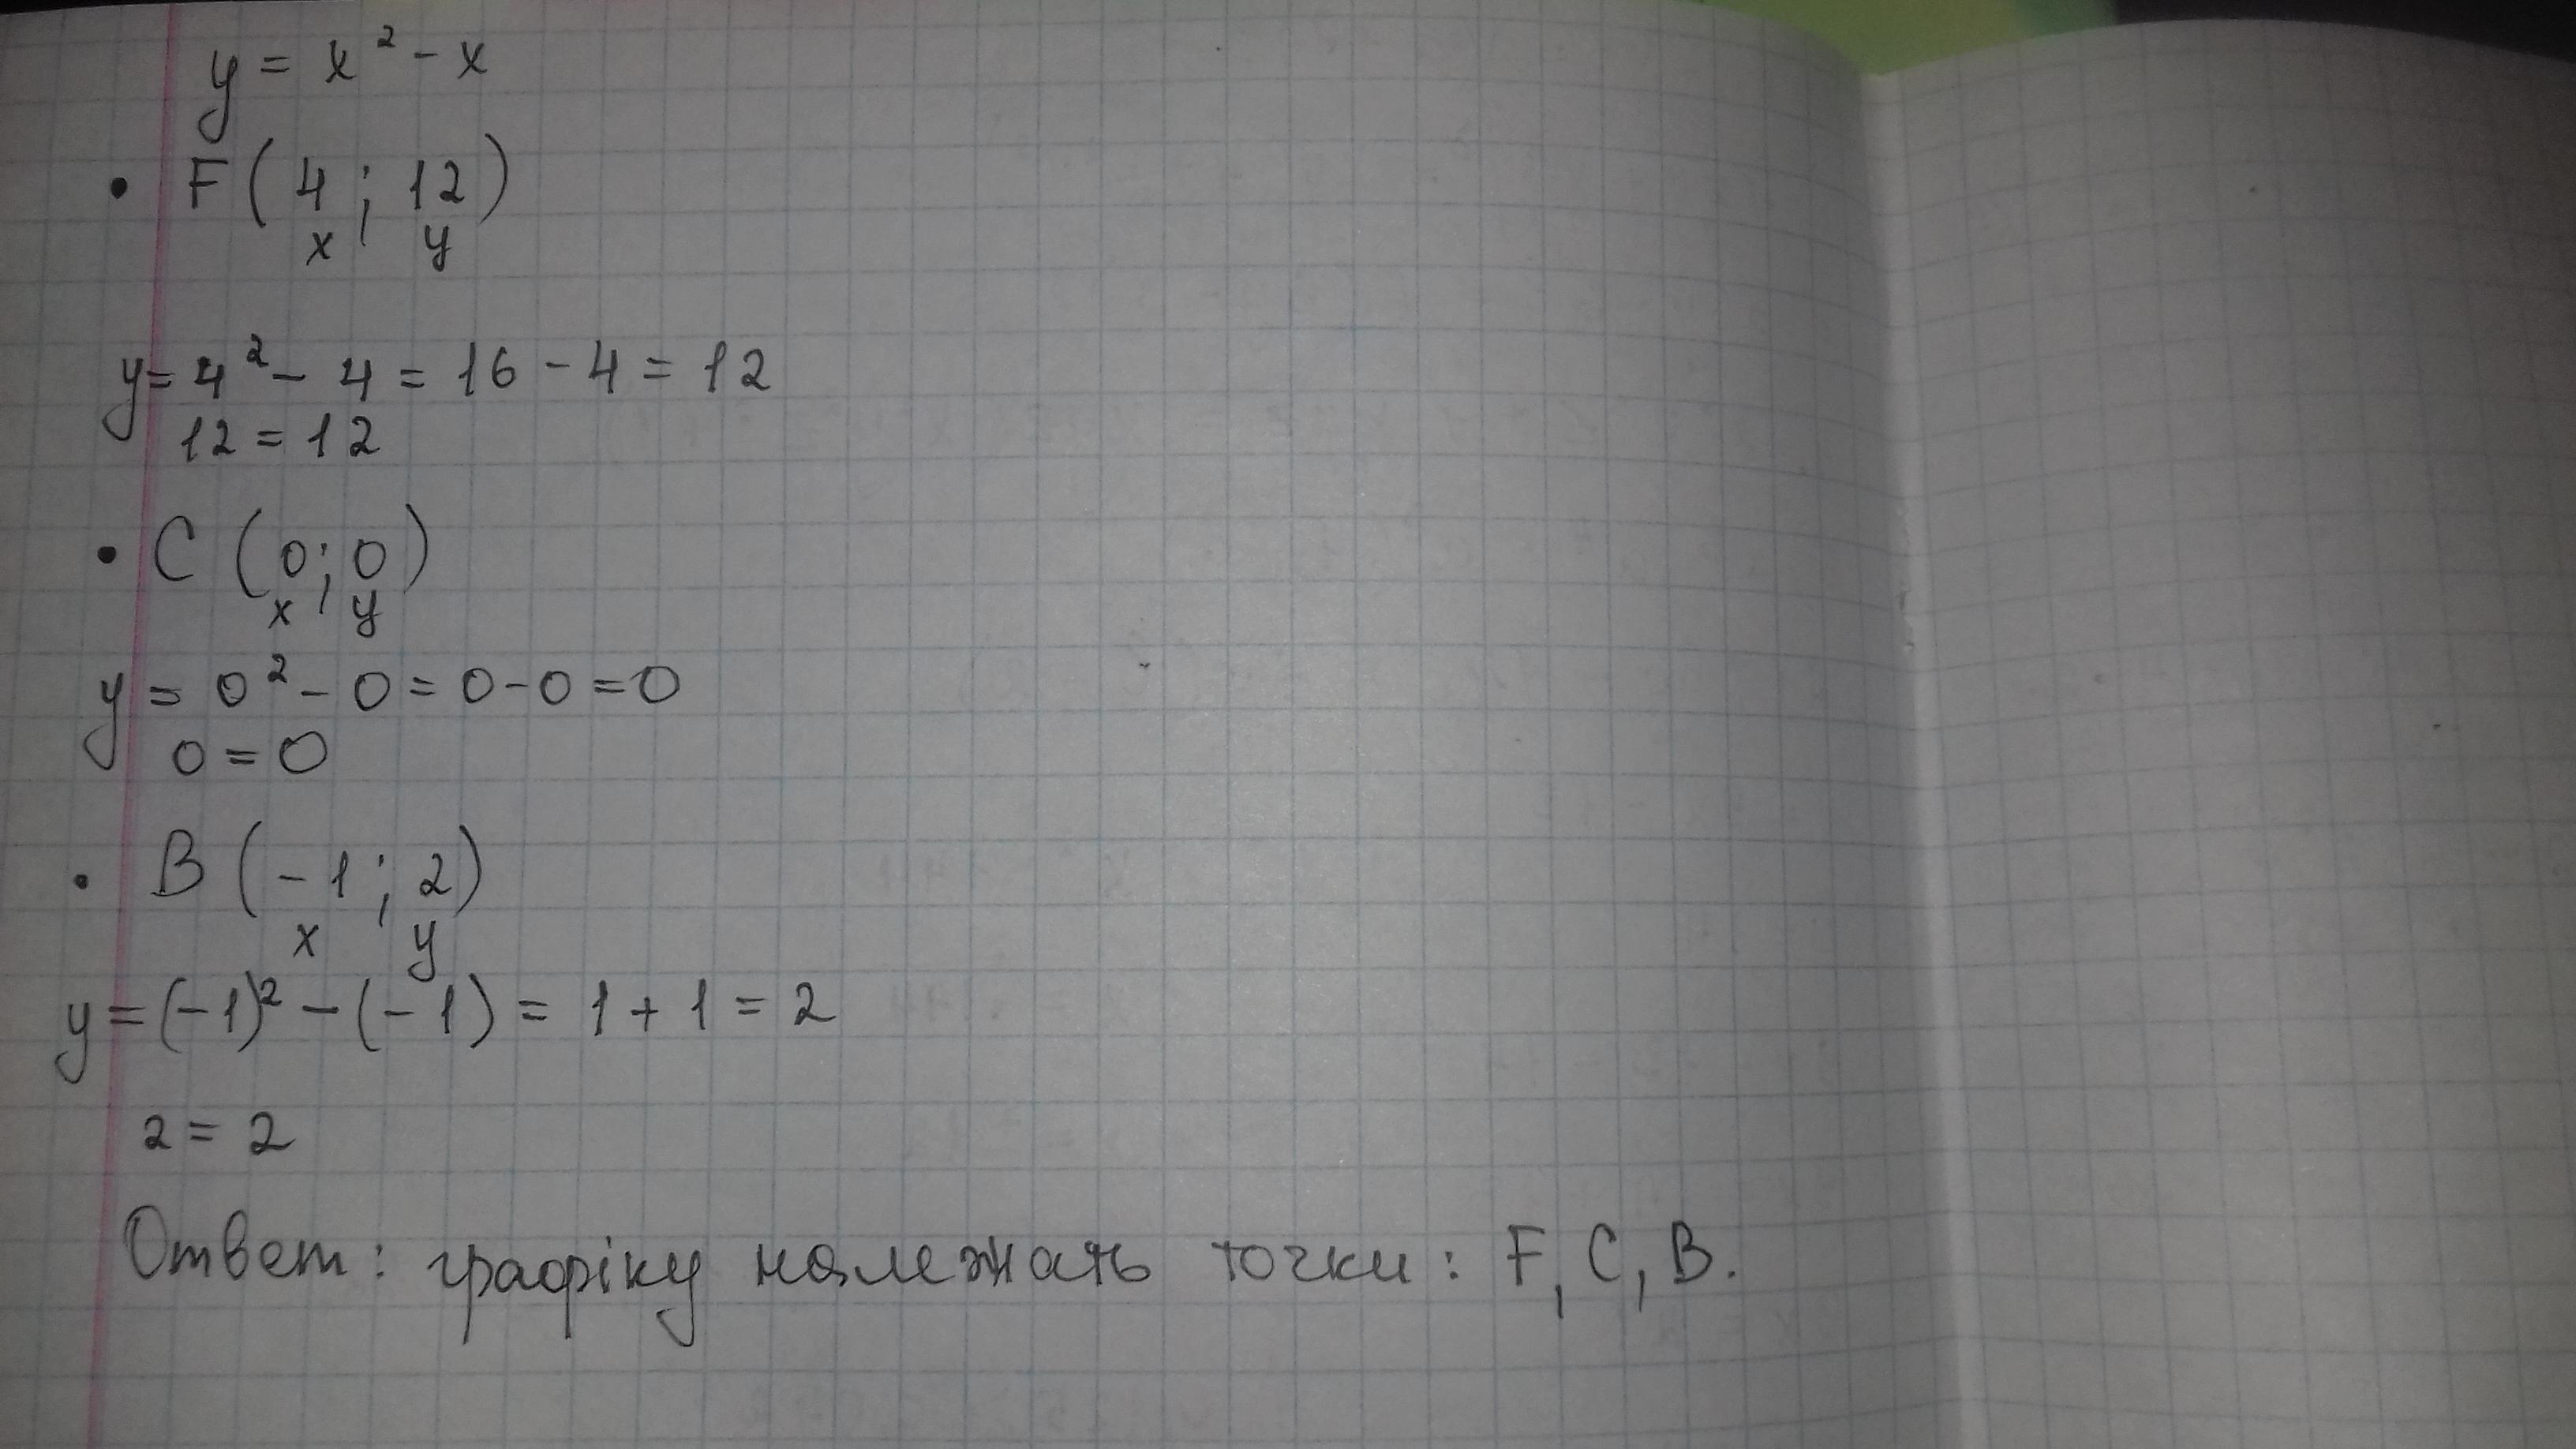 y = x² - x
• F (4 ; 12)
x y
y = 4² - 4 = 16 - 4 = 12
12 = 12
• C (0 ; 0)
x y
y = 0² - 0 = 0 - 0 = 0
0 = 0
• B (-1 ; 2)
x y
y = (-1)² - (-1) = 1 + 1 = 2
2 = 2
Ответ: графіку належать точки: F, C, B.